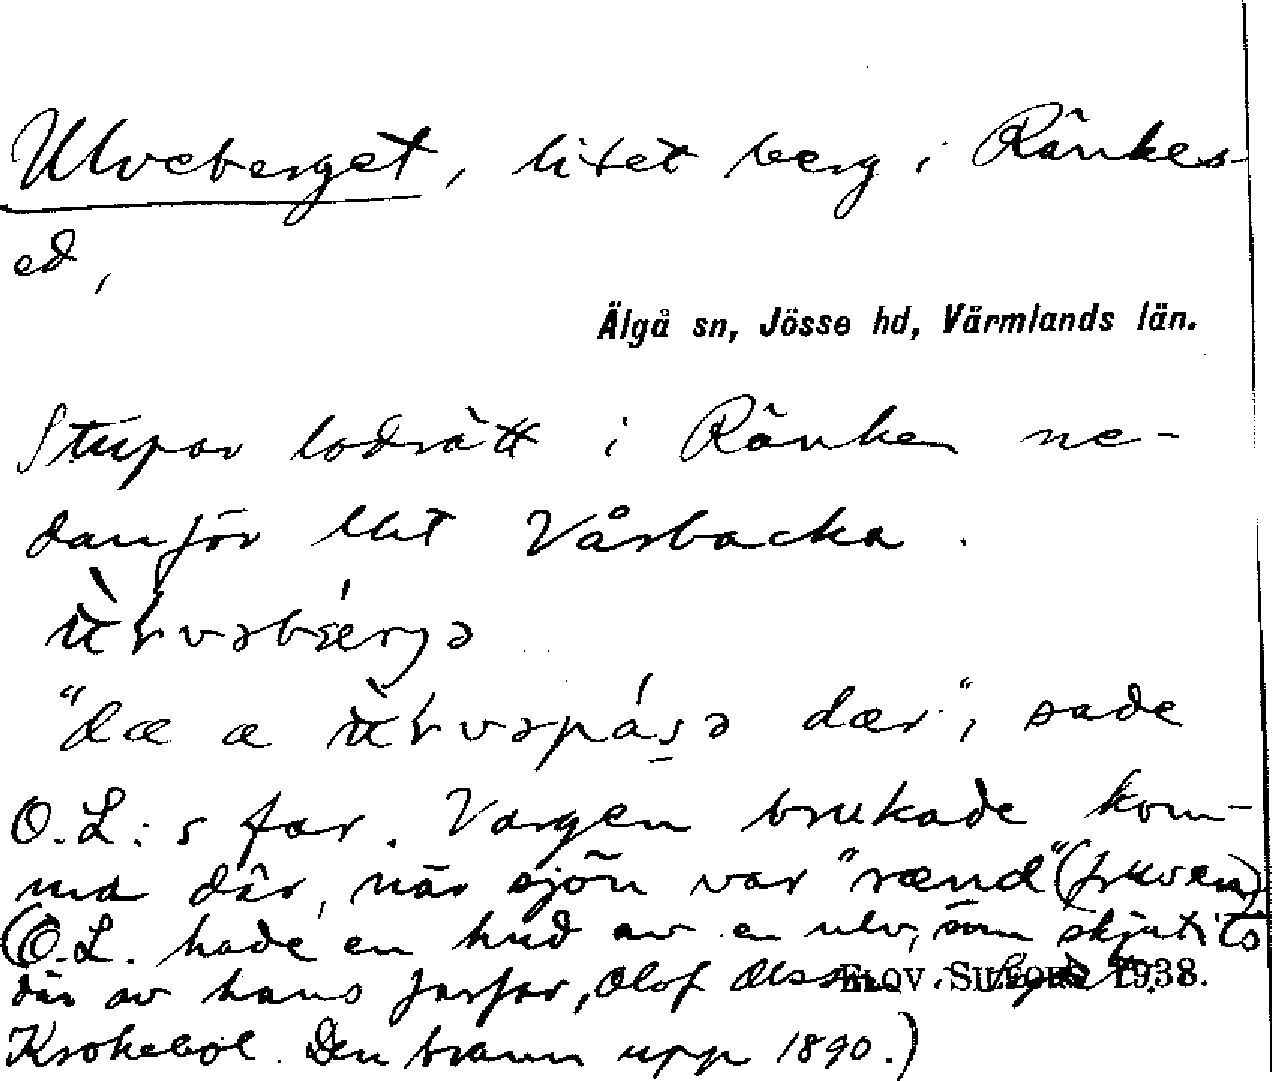 Ulveberget, litet berg i Ränkes-
ed,
Älgå sn, Jösse hd, Värmlands län.
Stupar lodrätt i Ränken ne-
danför lht Vårbacka.
"dæ æ dær", sade
O.L.:s far. Vargen brukade kom-
ma där, när sjön var "rænd" (frusen)
(O.L. hade en hud av en ulv, som skjutits
där av hans farfar, Olof Olsson
ELOV. 1938.
Krokebol. Den brann upp 1890.)